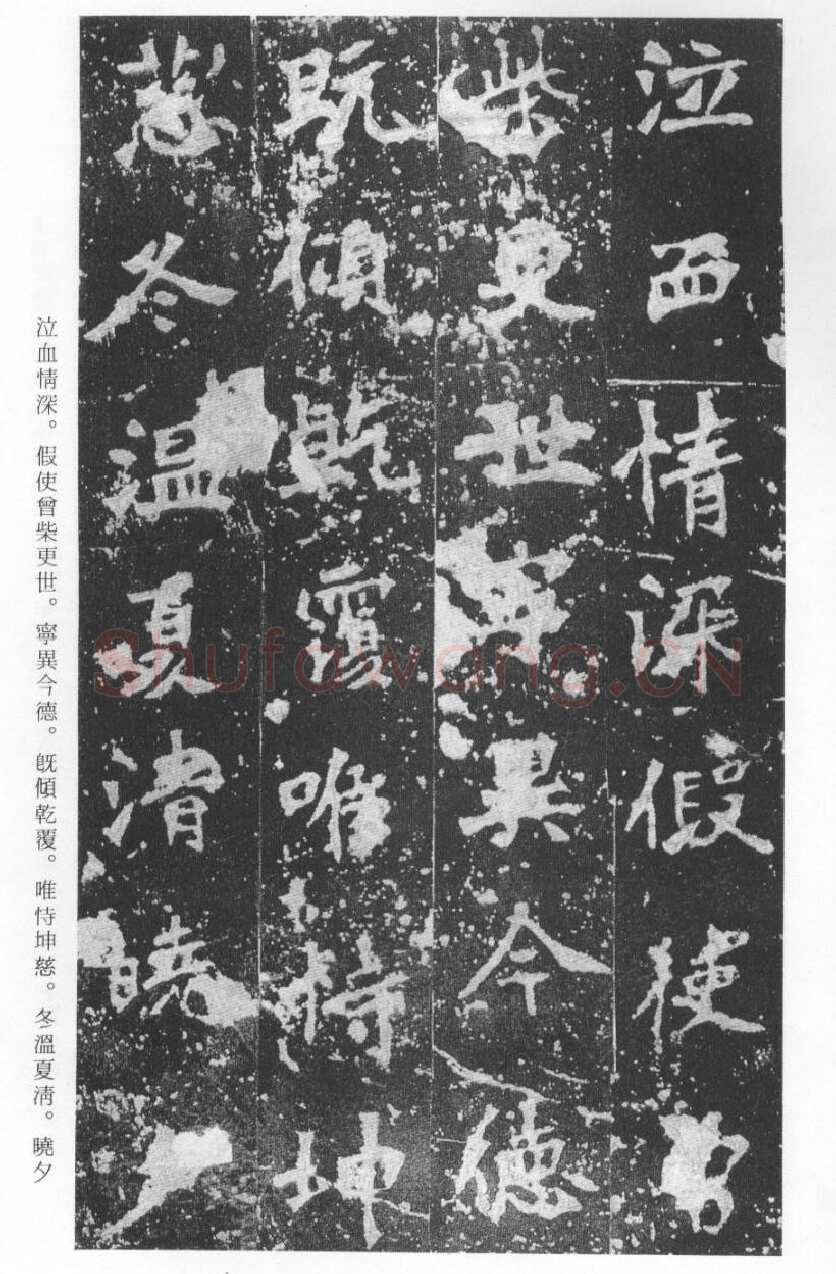 泣血情深假使曾
柴更世寧異今德
既傾乾覆唯恃坤
慈冬溫夏清曉夕
泣血情深。假使曾柴更世。寧異今德。既傾乾覆。唯恃坤慈。冬溫夏清。曉夕
Shufawang.CN